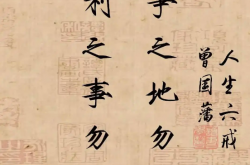 人生六戒
曾国藩
争之地勿
利之事勿